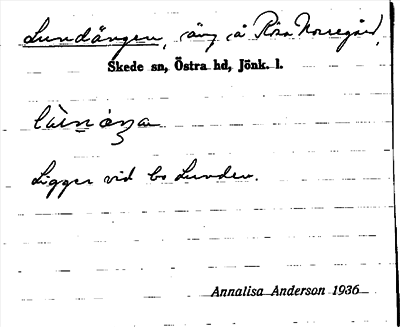 Lundängen, äng å Röra Norregård,
Skede sn, Östra hd, Jönk. l.
Ligger vid bs Lunden.
Annalisa Anderson 1936